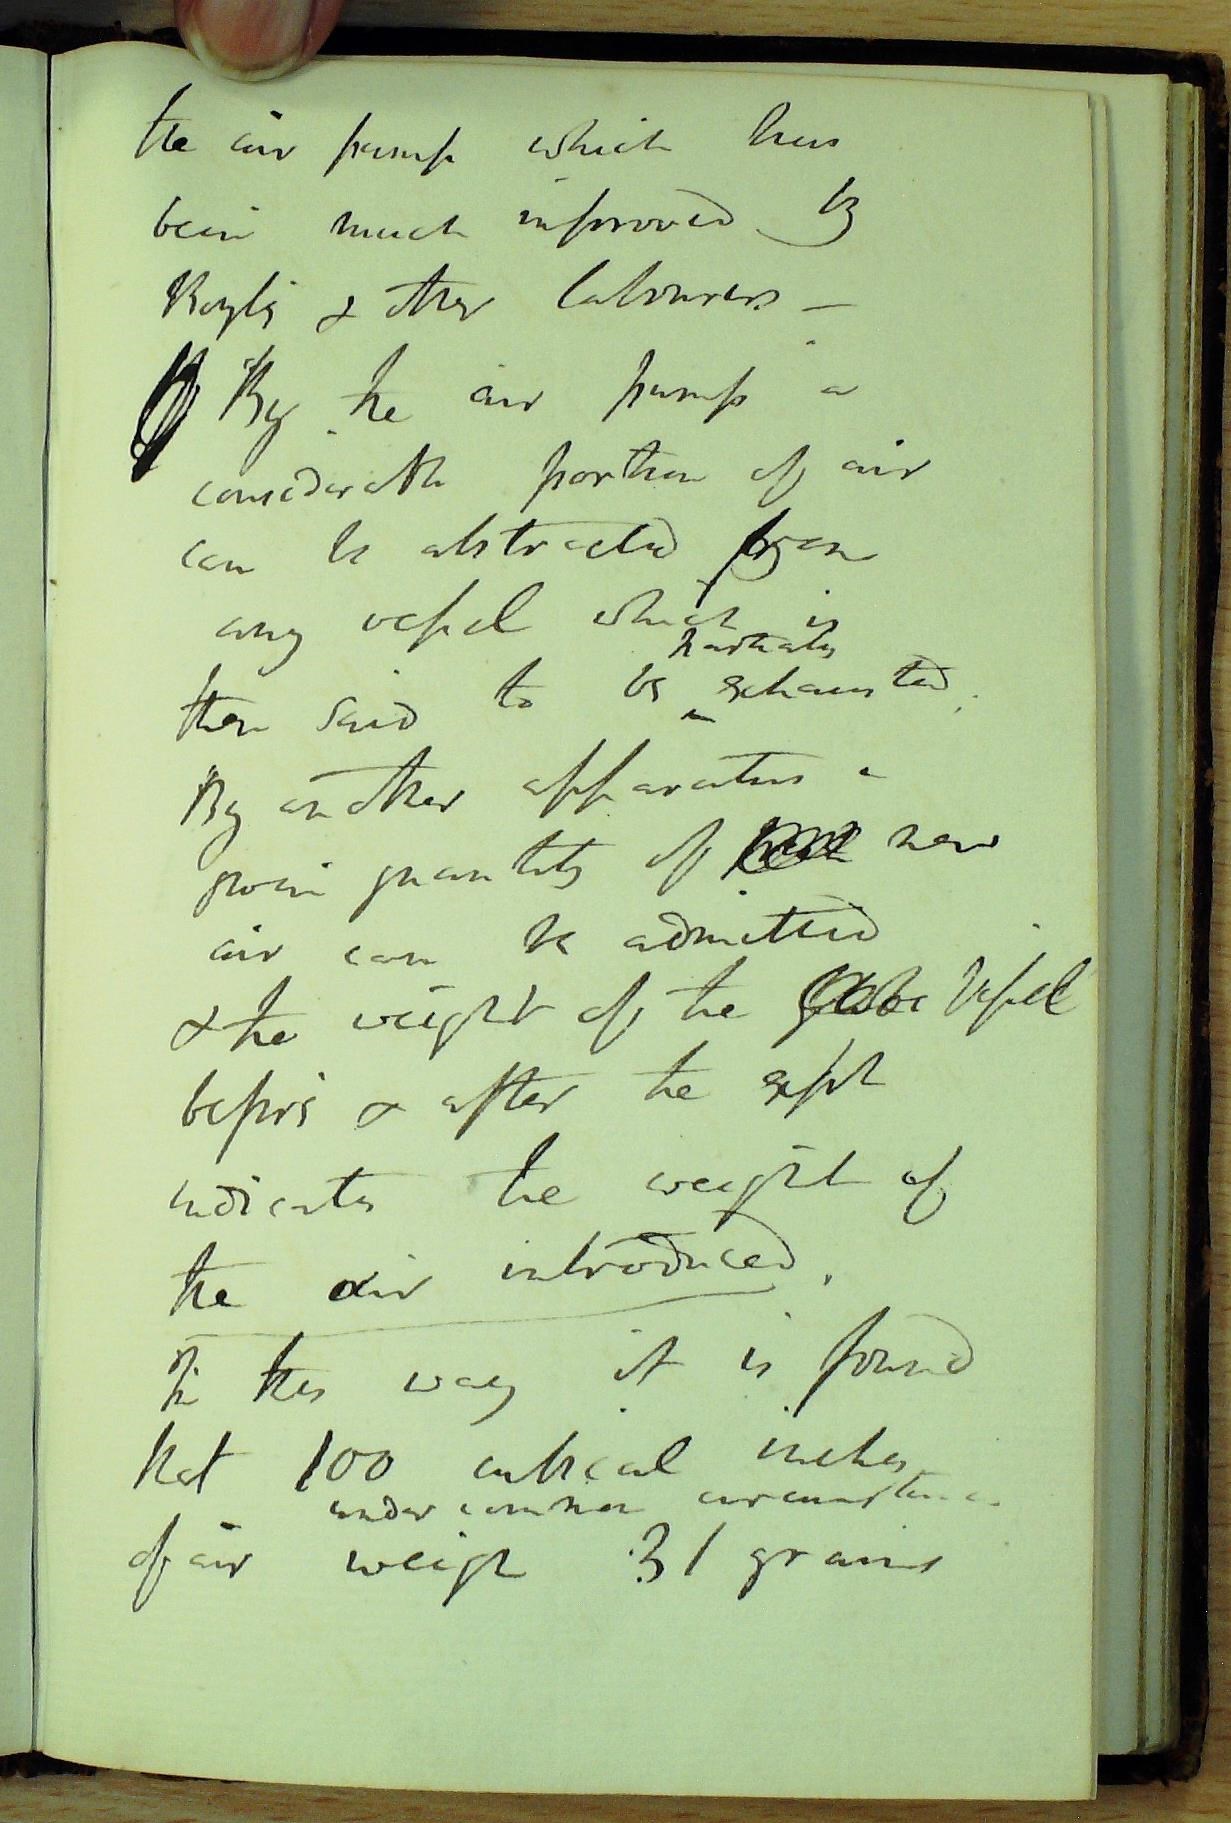 the air pump which has
been much improved by
Boyle & other labourers –
By the air pump a
considerable portion of air
can be abstracted from
any vessel which is
partially
then said to be exhausted.
By another apparatus a
given quantity of new
air can be admitted
& the weight of the globe Vessel
before & after the expt
indicates the weight of
the air introduced.
In this way it is found
that 100 cubical inches
under common circumstances
of air weigh 31 grains